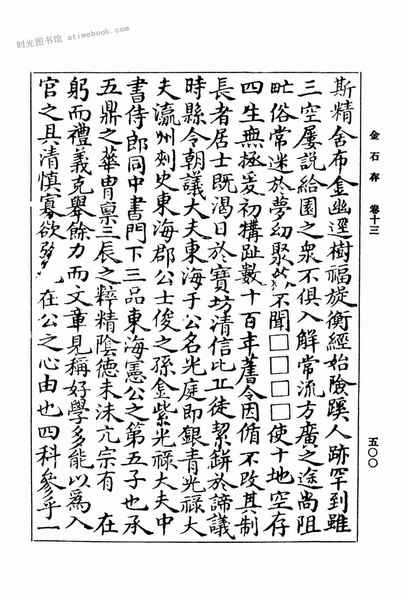 时光图书馆 atimebook.com
金石存 卷十三
五〇〇
斯精舍布金幽邃樹福旋衡經始險蹊人跡罕到雖
三空屢說給園之衆不俱入解常流方廣之途尚阻
甿俗常迷於夢幻聚 不聞□□□□使十地空存
四生無極爰初構趾數十百年舊令因循不改其制
長者居士既渴日於寶坊清信比丘徒絜缾於諦議
時縣令朝議大夫東海子公名光庭即銀青光祿大
夫瀛州刺史東海郡公士俊之孫金紫光祿大夫中
書侍郎同中書門下三品東海憲公之第五子也承
五鼎之華胄禀三辰之粹精陰德未沬亢宗有 在
躬而禮義克舉餘力而文章見稱好學多能以爲入
官之具清慎寡欲 在公之心由也四科參乎一